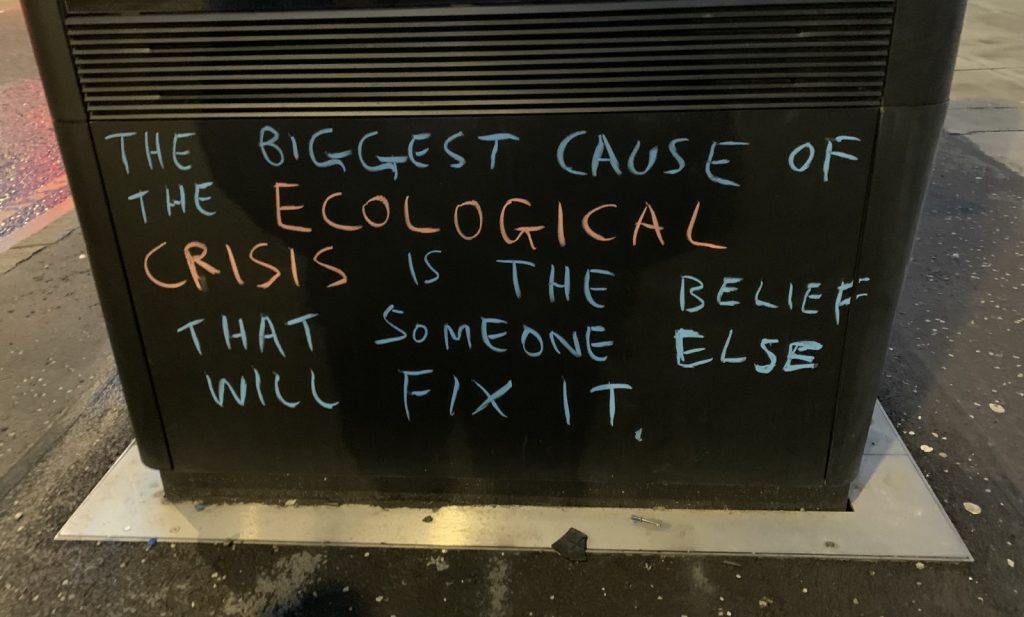 THE BIGGEST CAUSE OF
THE ECOLOGICAL
CRISIS IS THE BELIEF
THAT SOMEONE ELSE
WILL FIX IT.